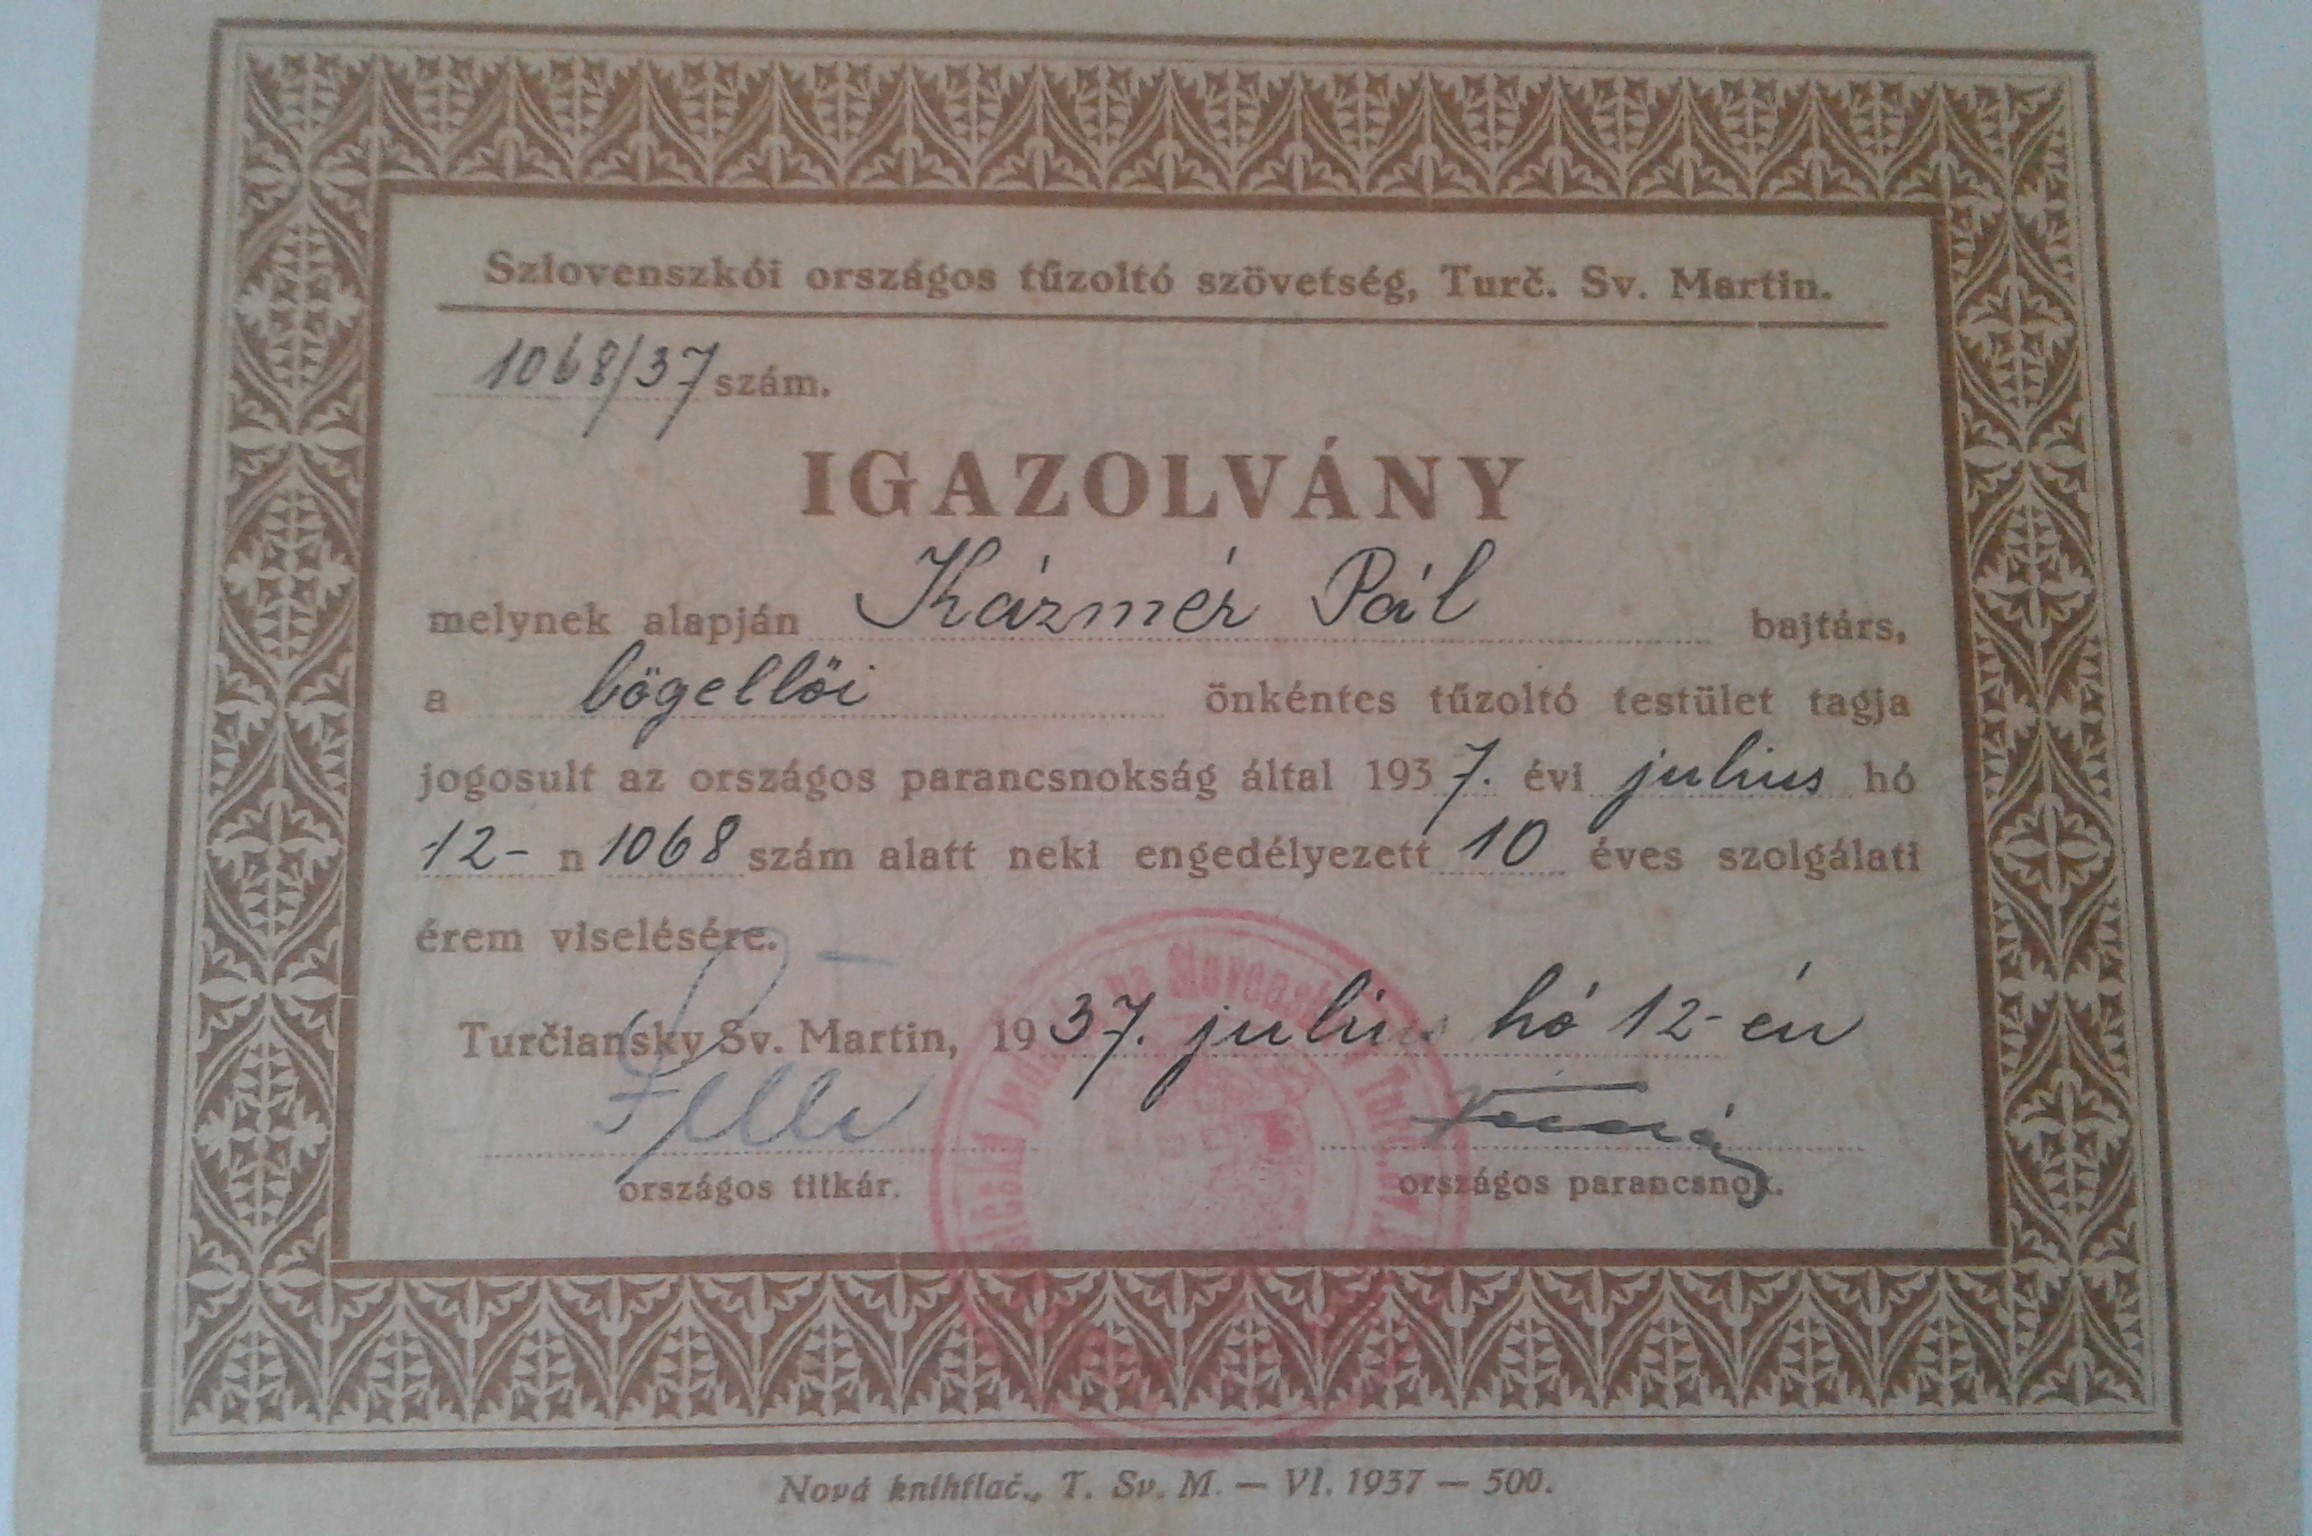 Szlovenszkói országos tűzoltó szövetség, Turč. Sv. Martin.
1068/37 szám.
IGAZOLVÁNY
melynek alapján Kázmér Pál bajtárs,
a bögellői önkéntes tűzoltó testület tagja
jogosult az országos parancsnokság által 1937. évi julius hó
12- n 1068 szám alatt neki engedélyezett 10 éves szolgálati
érem viselésére.
Turčiansky Sv. Martin, 1937. julius hó 12-én
országos titkár. országos parancsnok.
Nová kníhtlač., T. Sv. M. — VI. 1937 — 500.